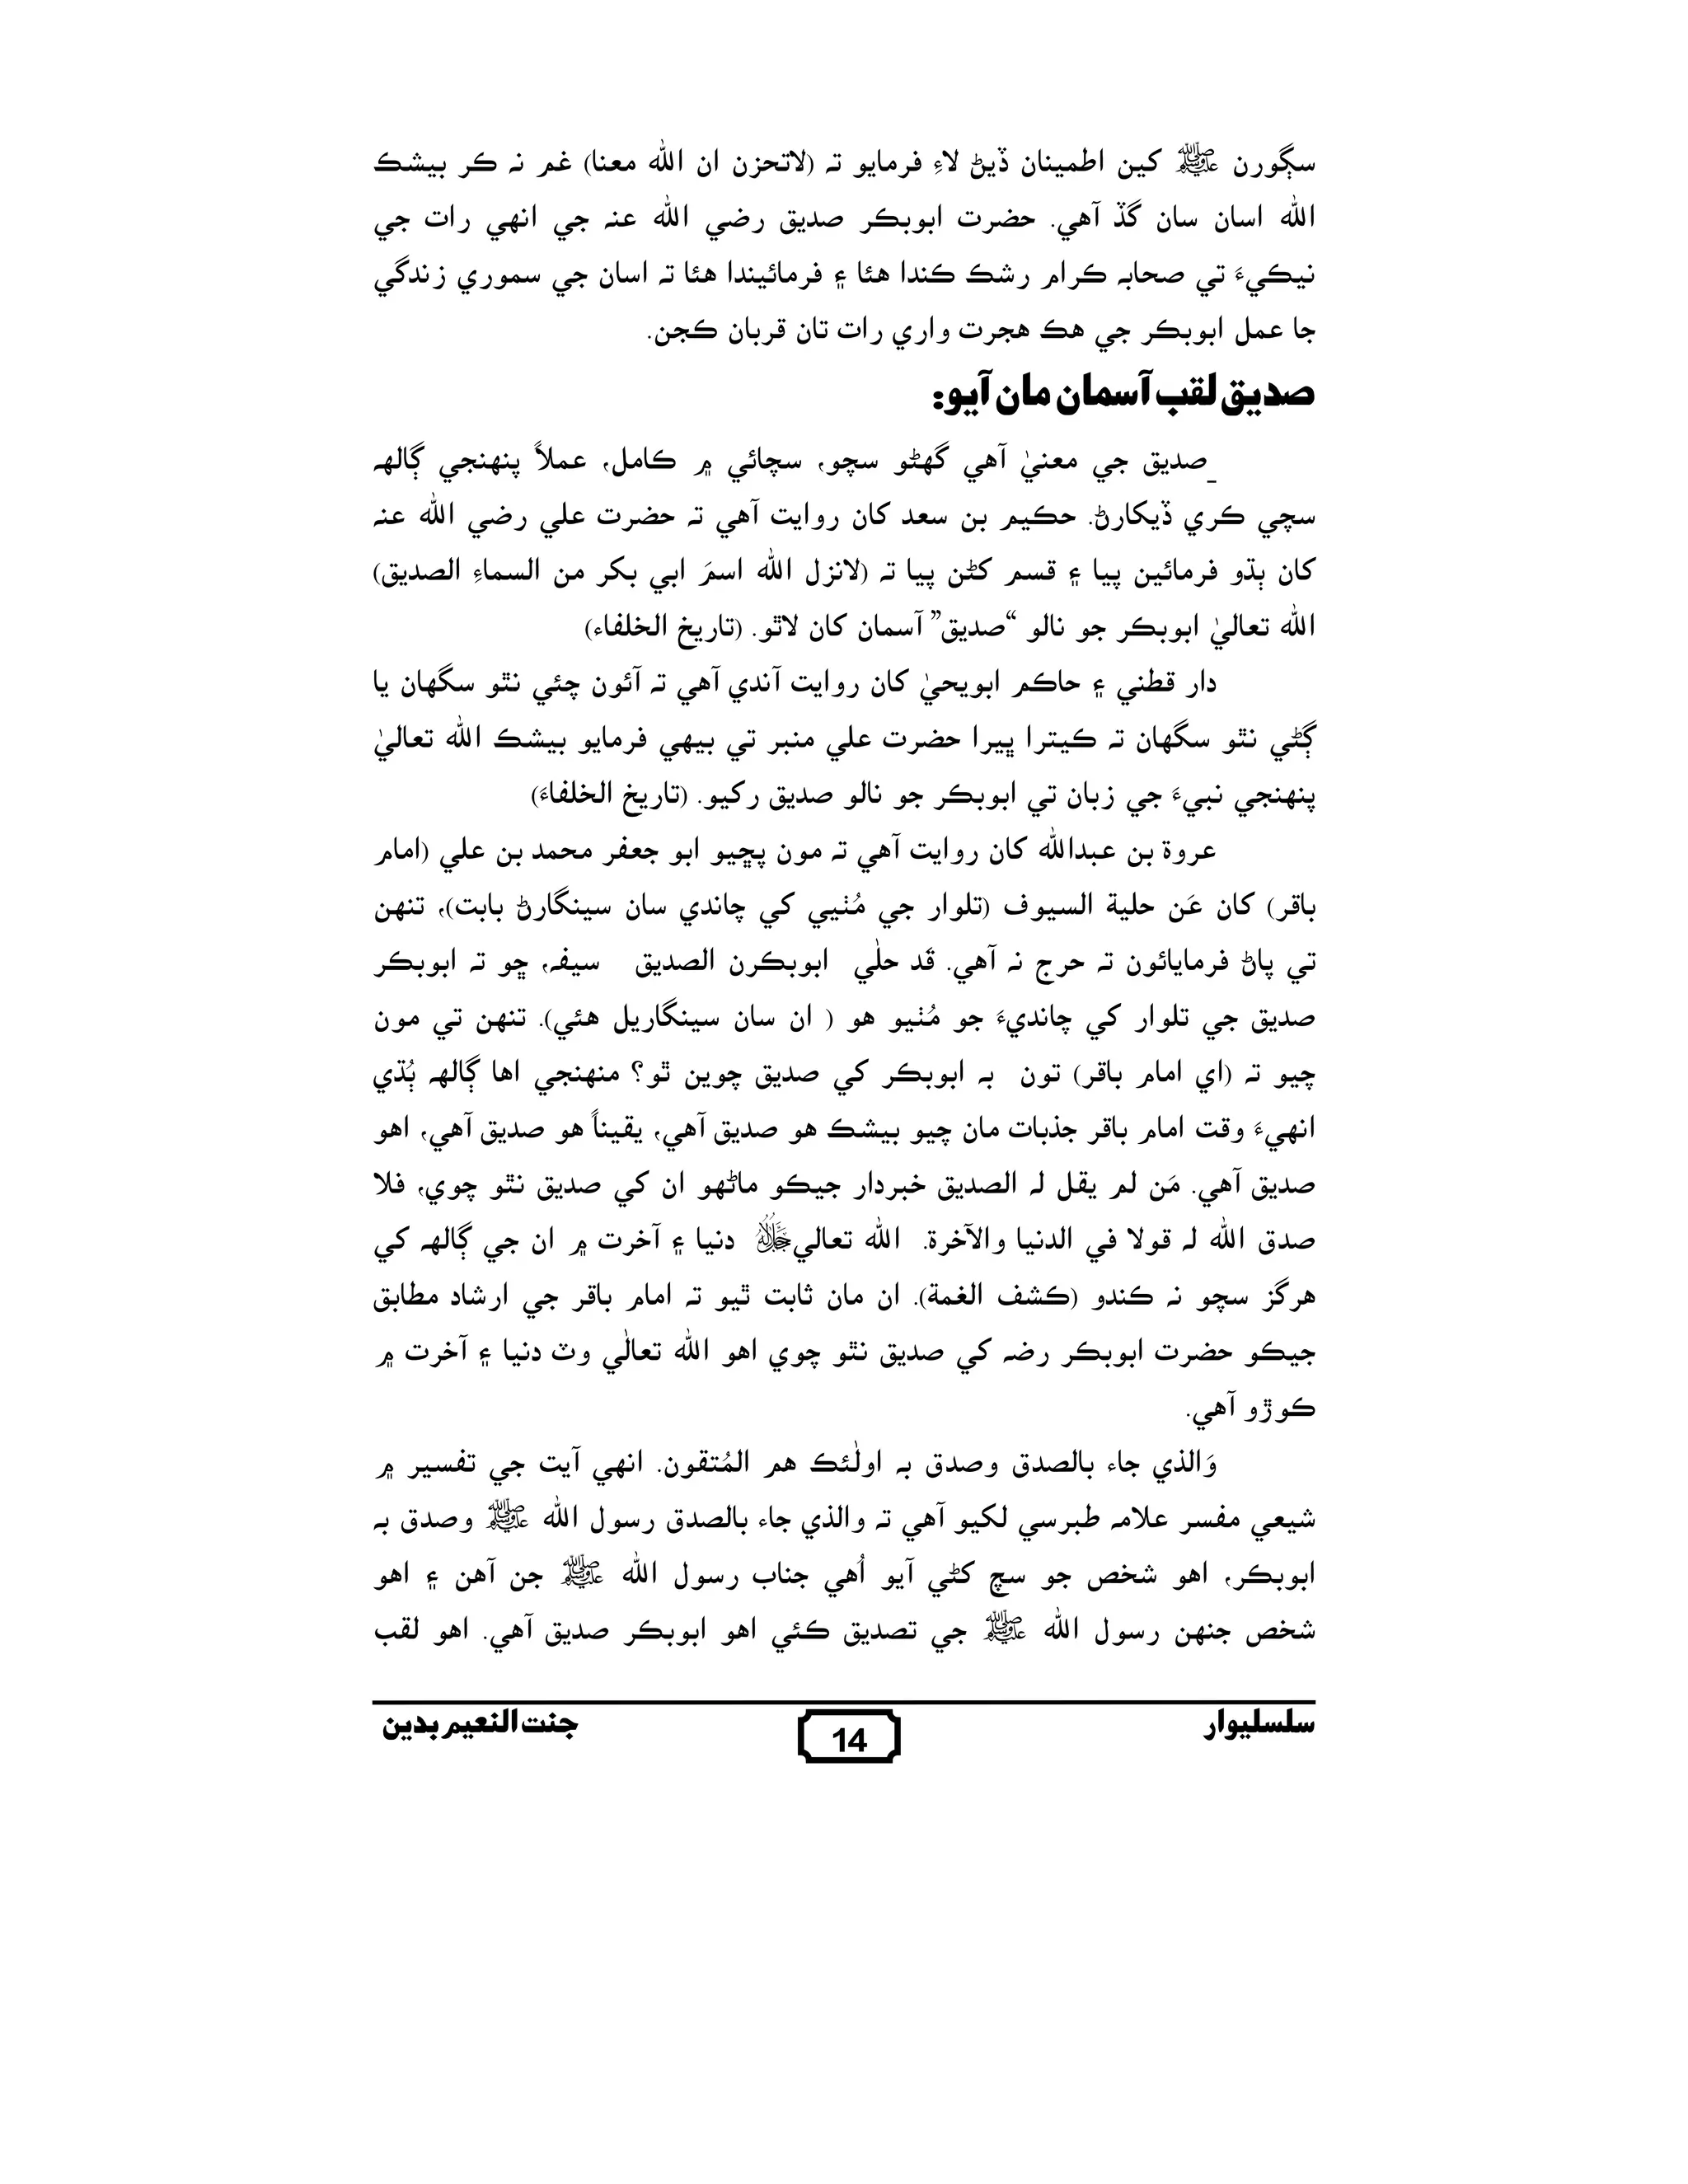 سڳورن ﷺ کين اطمينان ڏيڻ لاءِ فرمايو تہ (لاتحزن ان الله معنا) غم نہ ڪر بيشڪ
الله اسان سان گڏ آهي. حضرت ابوبڪر صديق رضي الله عنہ جي انهي رات جي
نيڪيءَ تي صحابہ ڪرام رشڪ ڪندا هئا ۽ فرمائيندا هئا تہ اسان جي سموري زندگي
جا عمل ابوبڪر جي هڪ هجرت واري رات تان قربان ڪجن.
صديق لقب آسمان مان آيو:
_صديق جي معنيٰ آهي گهڻو سچو، سچائي ۾ ڪامل، عملاً پنهنجي ڳالهہ
سچي ڪري ڏيکارڻ. حڪيم بن سعد کان روايت آهي تہ حضرت علي رضي الله عنہ
کان ٻڌو فرمائين پيا ۽ قسم کڻن پيا تہ (لانزل الله اسمَ ابي بکر من السماءِ الصديق)
الله تعاليٰ ابوبڪر جو نالو “صديق” آسمان کان لاٿو. (تاريخ الخلفاء)
دار قطني ۽ حاڪم ابويحيٰ کان روايت آندي آهي تہ آئون چئي نٿو سگهان يا
ڳڻي نٿو سگهان تہ ڪيترا ڀيرا حضرت علي منبر تي بيهي فرمايو بيشڪ الله تعاليٰ
پنهنجي نبيءَ جي زبان تي ابوبڪر جو نالو صديق رکيو. (تاريخ الخلفاءَ)
عروة بن عبدالله کان روايت آهي تہ مون پڇيو ابو جعفر محمد بن علي (امام
باقر) کان عَن حلية السيوف (تلوار جي مُٺيي کي چاندي سان سينگارڻ بابت)، تنهن
تي پاڻ فرمايائون تہ حرج نہ آهي. قَد حلٰي ابوبڪرن الصديق سيفہ، ڇو تہ ابوبڪر
صديق جي تلوار کي چانديءَ جو مُٺيو هو ( ان سان سينگاريل هئي). تنهن تي مون
چيو تہ (اي امام باقر) تون بہ ابوبڪر کي صديق چوين ٿو؟ منهنجي اها ڳالهہ ٻُڌي
انهيءَ وقت امام باقر جذبات مان چيو بيشڪ هو صديق آهي، يقيناً هو صديق آهي، اهو
صديق آهي. مَن لم يقل لہ الصديق خبردار جيڪو ماڻهو ان کي صديق نٿو چوي، فلا
صدق الله لہ قولا في الدنيا والآخرة. الله تعاليﷻ دنيا ۽ آخرت ۾ ان جي ڳالهہ کي
هرگز سچو نہ ڪندو (ڪشف الغمة). ان مان ثابت ٿيو تہ امام باقر جي ارشاد مطابق
جيڪو حضرت ابوبڪر رضہ کي صديق نٿو چوي اهو الله تعالٰي وٽ دنيا ۽ آخرت ۾
ڪوڙو آهي.
وَالذي جاء بالصدق وصدق بہ اولٰئڪ هم المُتقون. انهي آيت جي تفسير ۾
شيعي مفسر علامہ طبرسي لکيو آهي تہ والذي جاء بالصدق رسول الله ﷺ وصدق بہ
ابوبڪر، اهو شخص جو سچ کڻي آيو اُهي جناب رسول الله ﷺ جن آهن ۽ اهو
شخص جنهن رسول الله ﷺ جي تصديق ڪئي اهو ابوبڪر صديق آهي. اهو لقب
سلسليوار 14 جنت النعيم بدين